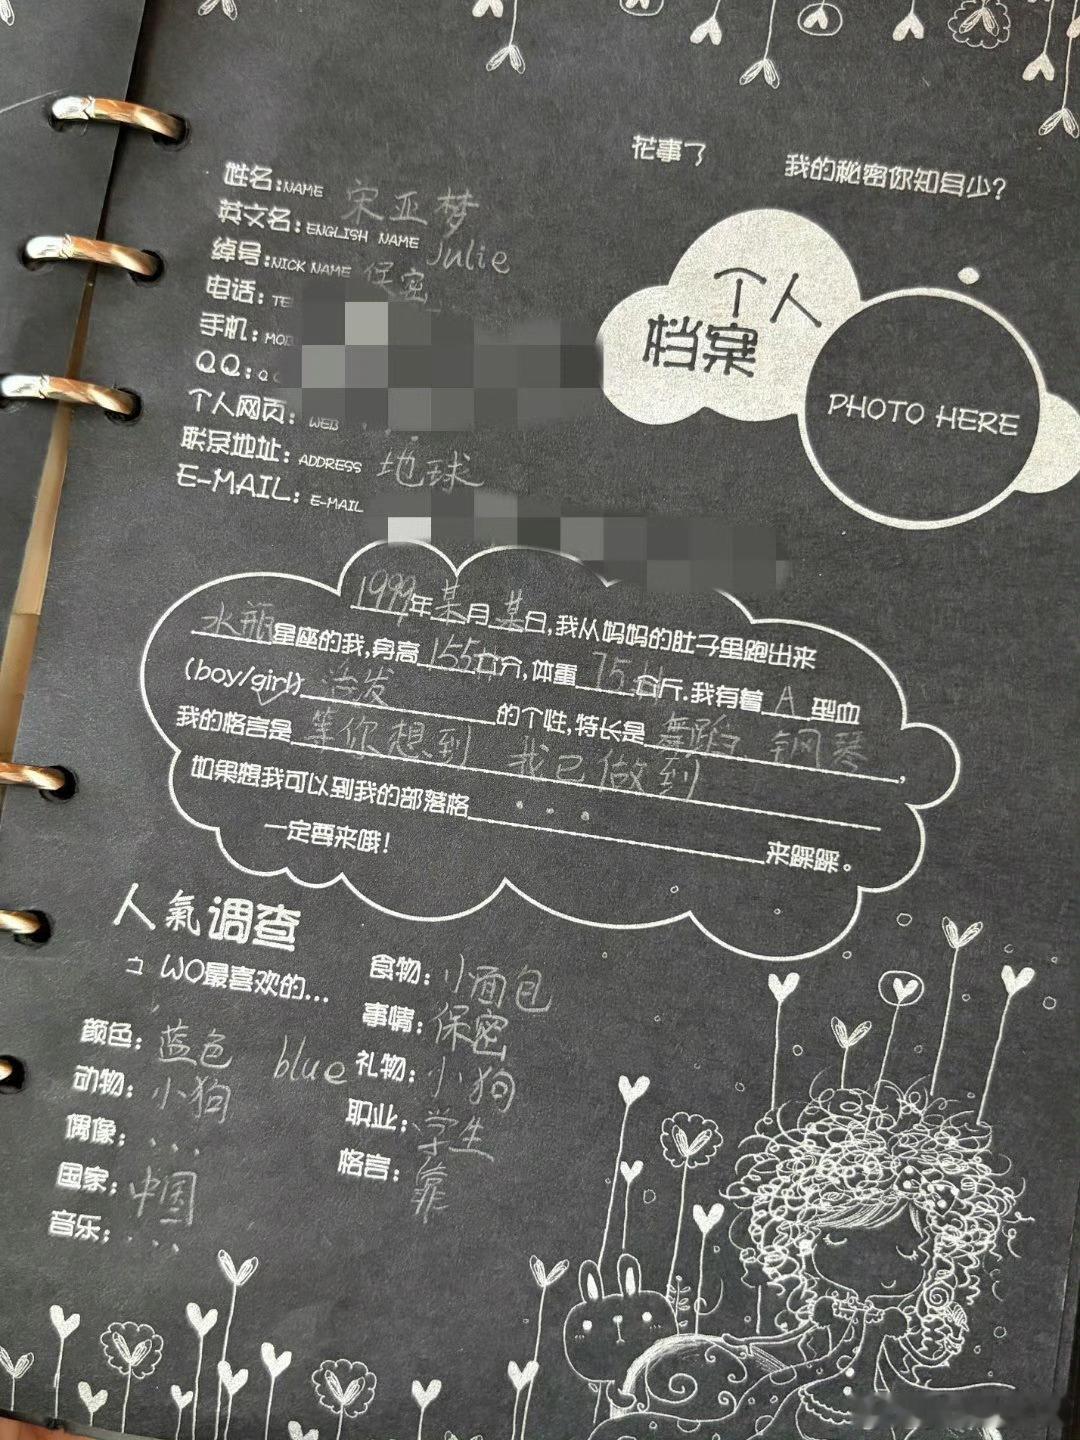 花事了 我的秘密你知多少?
个人
档案
PHOTO HERE
姓名:NAME 宋亚梦
英文名:ENGLISH NAME Julie
绰号:NICK NAME 保密
电话:TE
手机:MOB
QQ:QQ
个人网页:WEB
联系地址:ADDRESS 地球
E-MAIL:E-MAIL
1999年某月某日,我从妈妈的肚子里跑出来
水瓶星座的我,身高155公分,体重75公斤.我有着A型血
(boy/girl)活发的个性,特长是舞蹈 钢琴,
我的格言是等你想到 我已做到
如果想我可以到我的部落格...来踩踩。
一定要来哦!
人氣调查
WO最喜欢的...
颜色:蓝色 blue
动物:小狗
偶像:...
国家:中国
音乐:...
食物:小面包
事情:保密
礼物:小狗
职业:学生
格言:靠